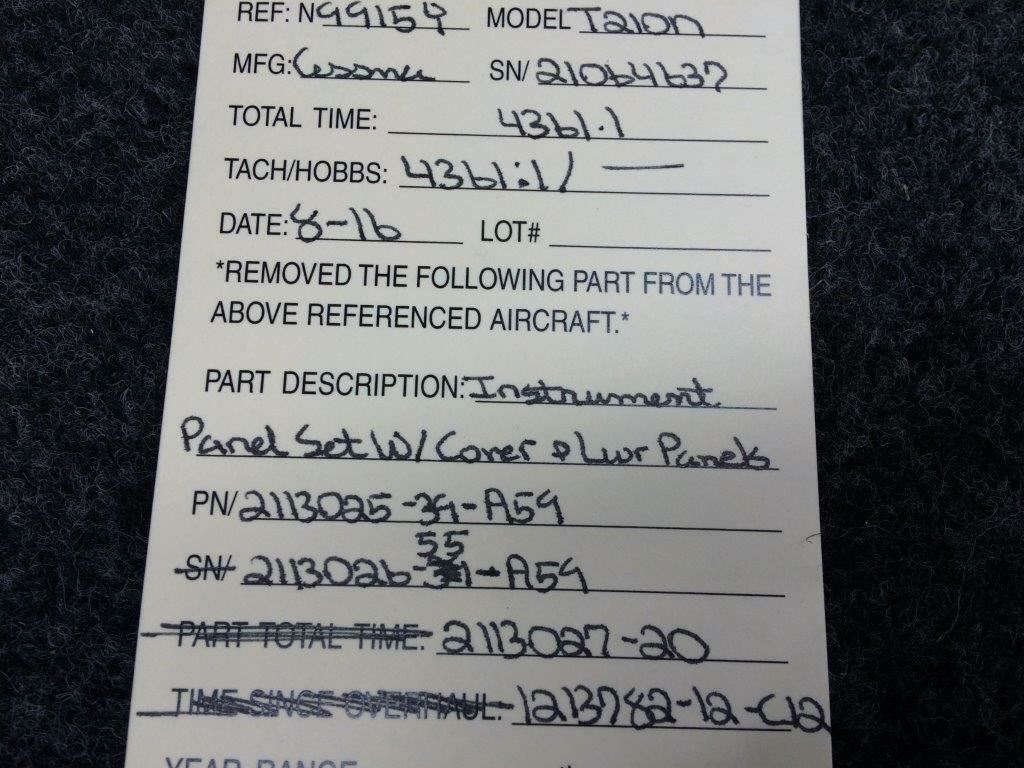 REF: N99159 MODEL T210N
MFG: Cessna SN/ 21064637
TOTAL TIME: 4361.1
TACH/HOBBS: 4361.1/ —
DATE: 8-16 LOT#
*REMOVED THE FOLLOWING PART FROM THE
ABOVE REFERENCED AIRCRAFT.*
PART DESCRIPTION: Instrument
Panel Set W/ Cover & Lwr Panels
PN/ 2113025-39-A59
55
SN/ 2113026- -A59
PART TOTAL TIME: 2113027-20
TIME SINCE OVERHAUL: 1213782-12-C12
YEAR RANGE